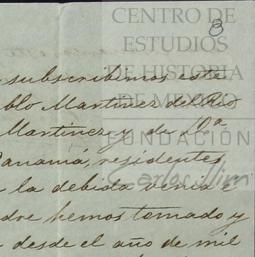 CENTRO DE
8
ESTUDIOS
DE HISTORIA
DE MEXICO
FUNDACIÓN
Carlos Slim
subscribimos este
blo Martinez del Rio
Martinez y de Da
Panamá, residentes
la debida venia é
dre hemos tomado y
desde el año de mil